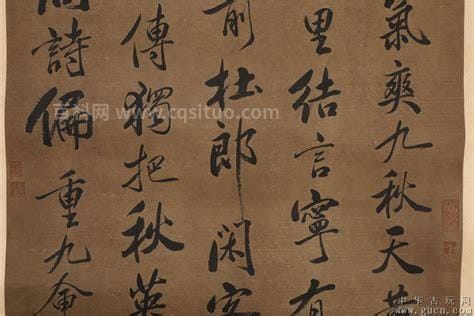 氣爽九秋天
里結言寧有
前杜郎閑客
傳獨把秋英
詩偏重九
百科网 www.cqsituo.com
中华古玩网
www.gucn.com